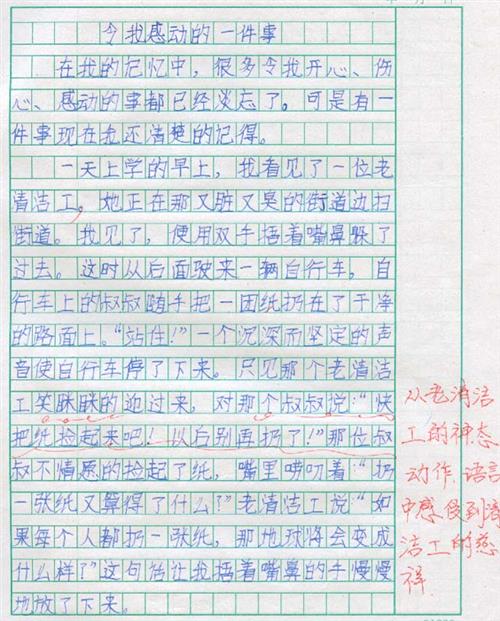 令我感动的一件事
在我的记忆中，很多令我开心、伤
心、感动的事都已经淡忘了。可是有一
件事现在我还清楚的记得。
一天上学的早上，我看见了一位老
清洁工，她正在那又脏又臭的街道边扫
街道。我见了，便用双手捂着嘴鼻躲了
过去。这时从后面驶来一辆自行车，自
行车上的叔叔随手把一团纸扔在了干净
的路面上。“站住！”一个沉深而坚定的声
音使自行车停了下来。只见那个老清洁
工笑眯眯的迎过来，对那个叔叔说：“快
把纸捡起来吧！以后别再扔了！”那位叔
叔不情愿的捡起了纸，嘴里唠叨着：“扔
一张纸又算得了什么？”老清洁工说：“如
果每个人都扔一张纸，那地球将会变成
什么样？”这句话让我捂着嘴鼻的手慢慢
地放了下来。
从老清洁
工的神态
动作、语言
中感受到清
洁工的慈
祥.